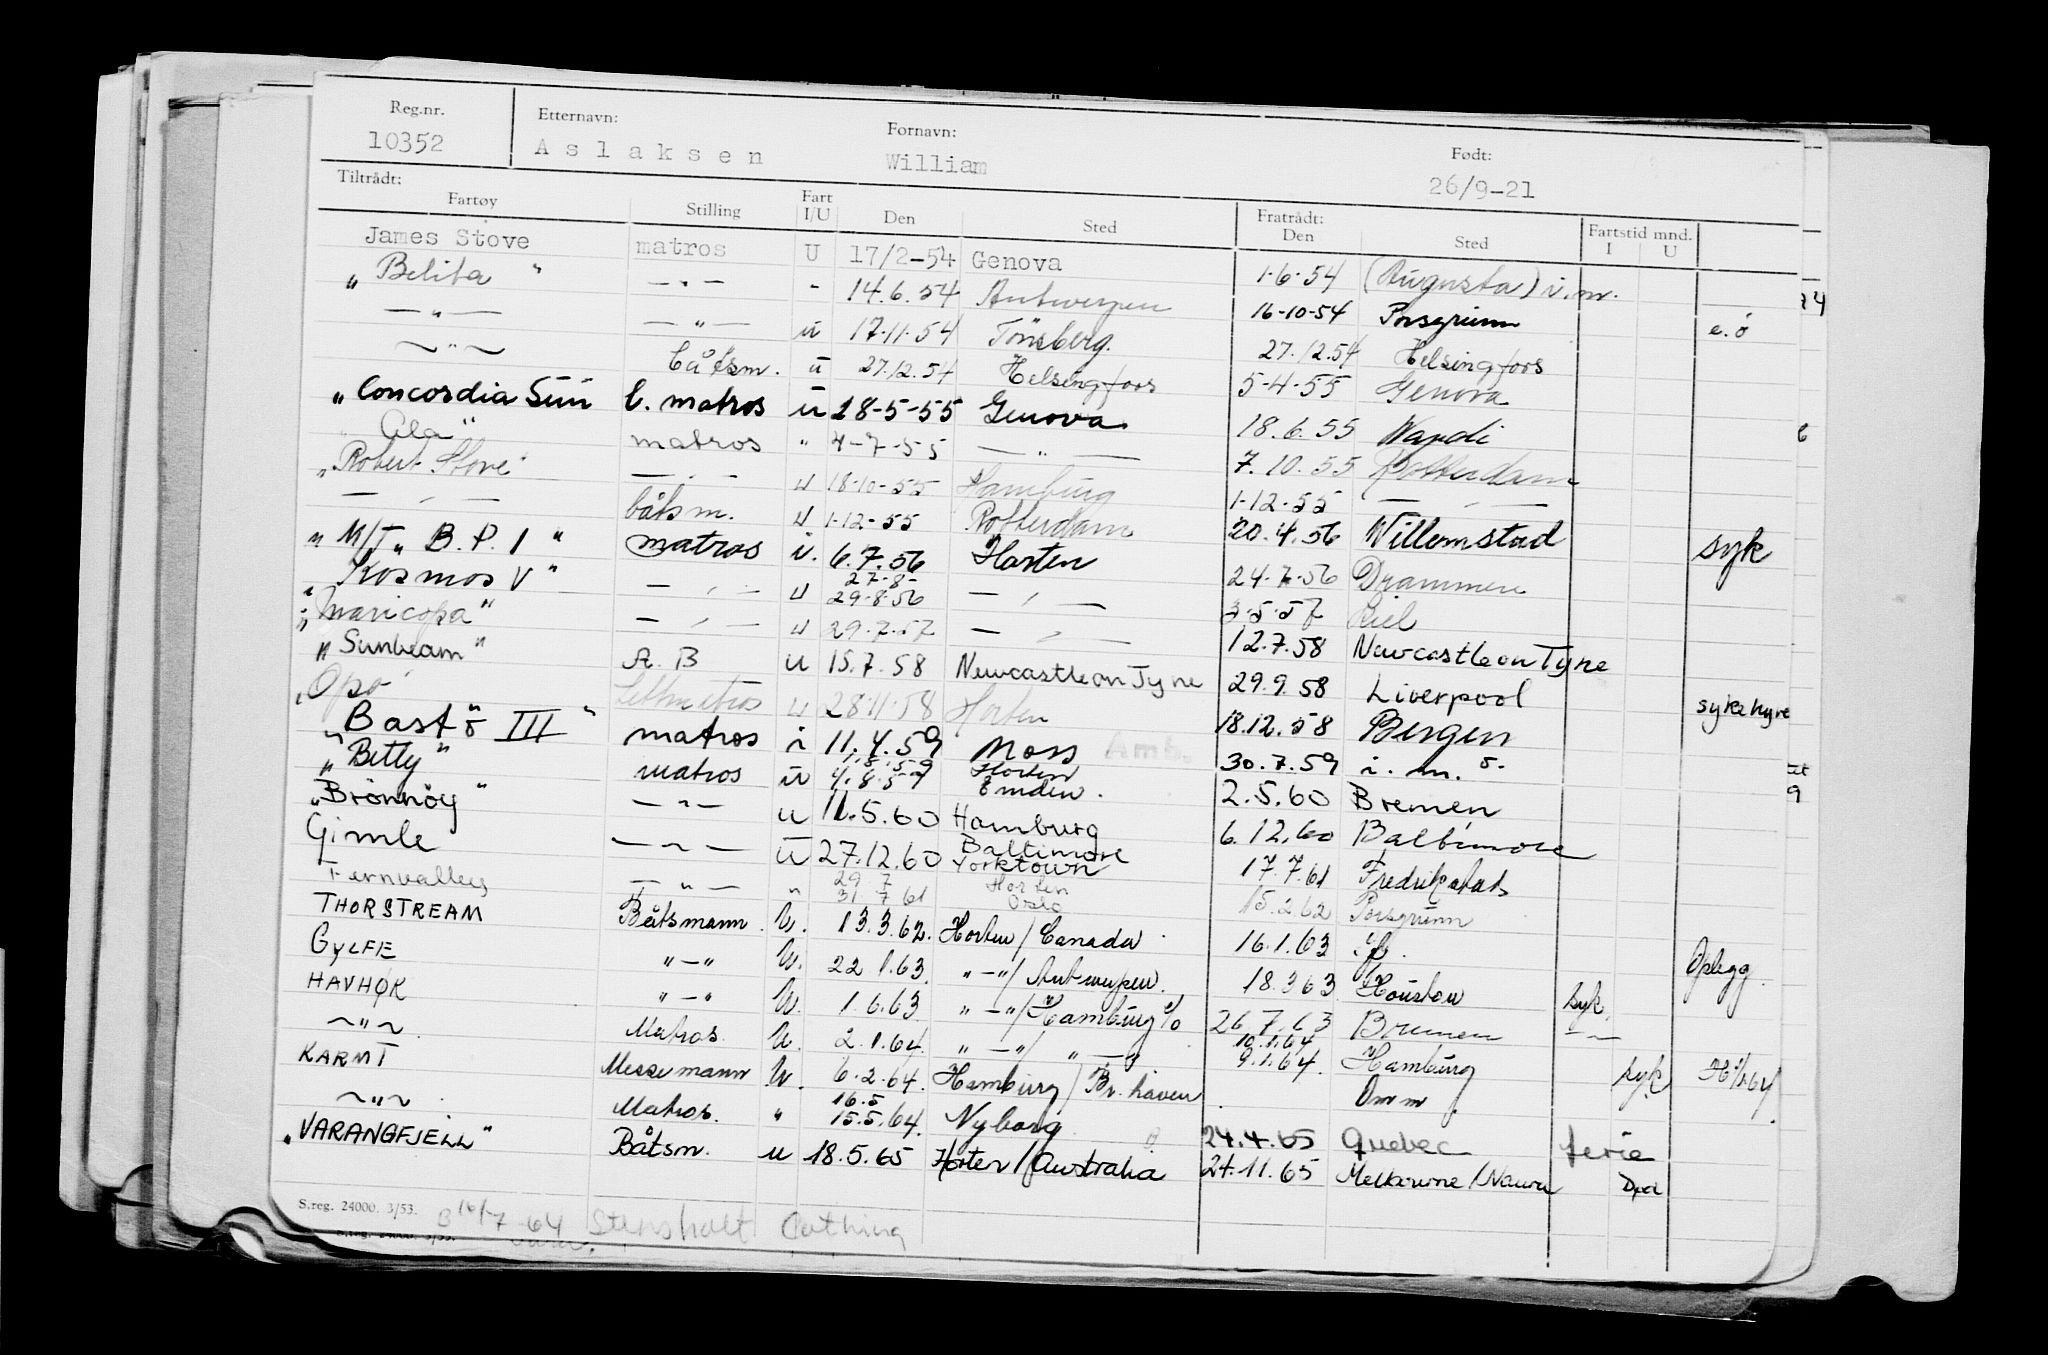 Reg.nr. Etternavn: Fornavn: Født:
10352 Aslaksen William 26/9-21
Tiltrådt: Fratrådt:
Fartøy Stilling Fart I/U Den Sted Den Sted Fartstid mnd. I U
James Stove matros U 17/2-54 Genova 1-6-54 (Augusta) i.m.
" Belita " — " — - 14.6.54 Antwerpen 16-10-54 Porsgrunn e.ö
— " — — " — u 17-11-54 Tönsberg. 27.12.54 Helsingfors
— " — båtsm. u 27.12.54 Helsingfors 5-4-55 Genova
" Concordia Sun b. matros u 18-5-55 Genova 18.6.55 Napoli
Ala " matros " 4-7-55 — " — 7.10.55 Rotterdam
" Robert Stove " — " — u 18-10-55 Hamburg 1-12-55 — " —
— " — båtsm. u 1-12-55 Rotterdam 20.4.56 Willemstad syk
" M/T " B.P. 1 " matros i. 6.7.56 Horten 24-7-56 Drammen
" Kosmos V " — " — u 27-8- 29-8-56 — " — 3-5-57 Kiel
" Maricopa " — " — u 29-7-57 — " — 12.7.58 Newcastle on Tyne
" Sunbeam " A.B u 15.7.58 Newcastle on Tyne 29.9.58 Liverpool sykehyre
" Opo " Lettmatros u 28-11-58 Horten 18.12.58 Bergen
" Bastö III " matros i 11.4.59 Moss 30.7.59 i. m. ö.
" Betty " matros u 4.8.59 Horten Emden. 2.5.60 Bremen
" Brönnöy " — " — u 11.5.60 Hamburg 6.12.60 Baltimore
Gimle — " — u 27.12.60 Baltimore Yorktown 17.7.61 Fredrikstad
Fernvalley — " — " 29 7 31 7 61 Horten Oslo 15.2.62 Porsgrunn
THORSTREAM Båtsmann U. 13.3.62. Horten / Canada 16.1.63
GYLFE " — " U. 22 1.63. " — " / Antwerpen. 18.3 63 Houston syk. Oplegg
HAVHØK " — " U. 1.6.63 " — " / Hamburg 26.7.63 Bremen — " —
— " — Matros. U. 2.1.64. " — " / " — " 10.1.64 9.1.64. Hamburg syk
KARMT Messemann U. 6.2.64. Hamburg / Br. haven Omm.
— " — Matros. " 16.5 15.5.64. Nyborg 24.4.65 Quebec ferie
" VARANGFJELL " Båtsm. u 18.5.65 Horten / Australia 24.11.65 Melbourne / Nauru
S.reg. 24000. 3/53.
B 16/7-64 Stensholt